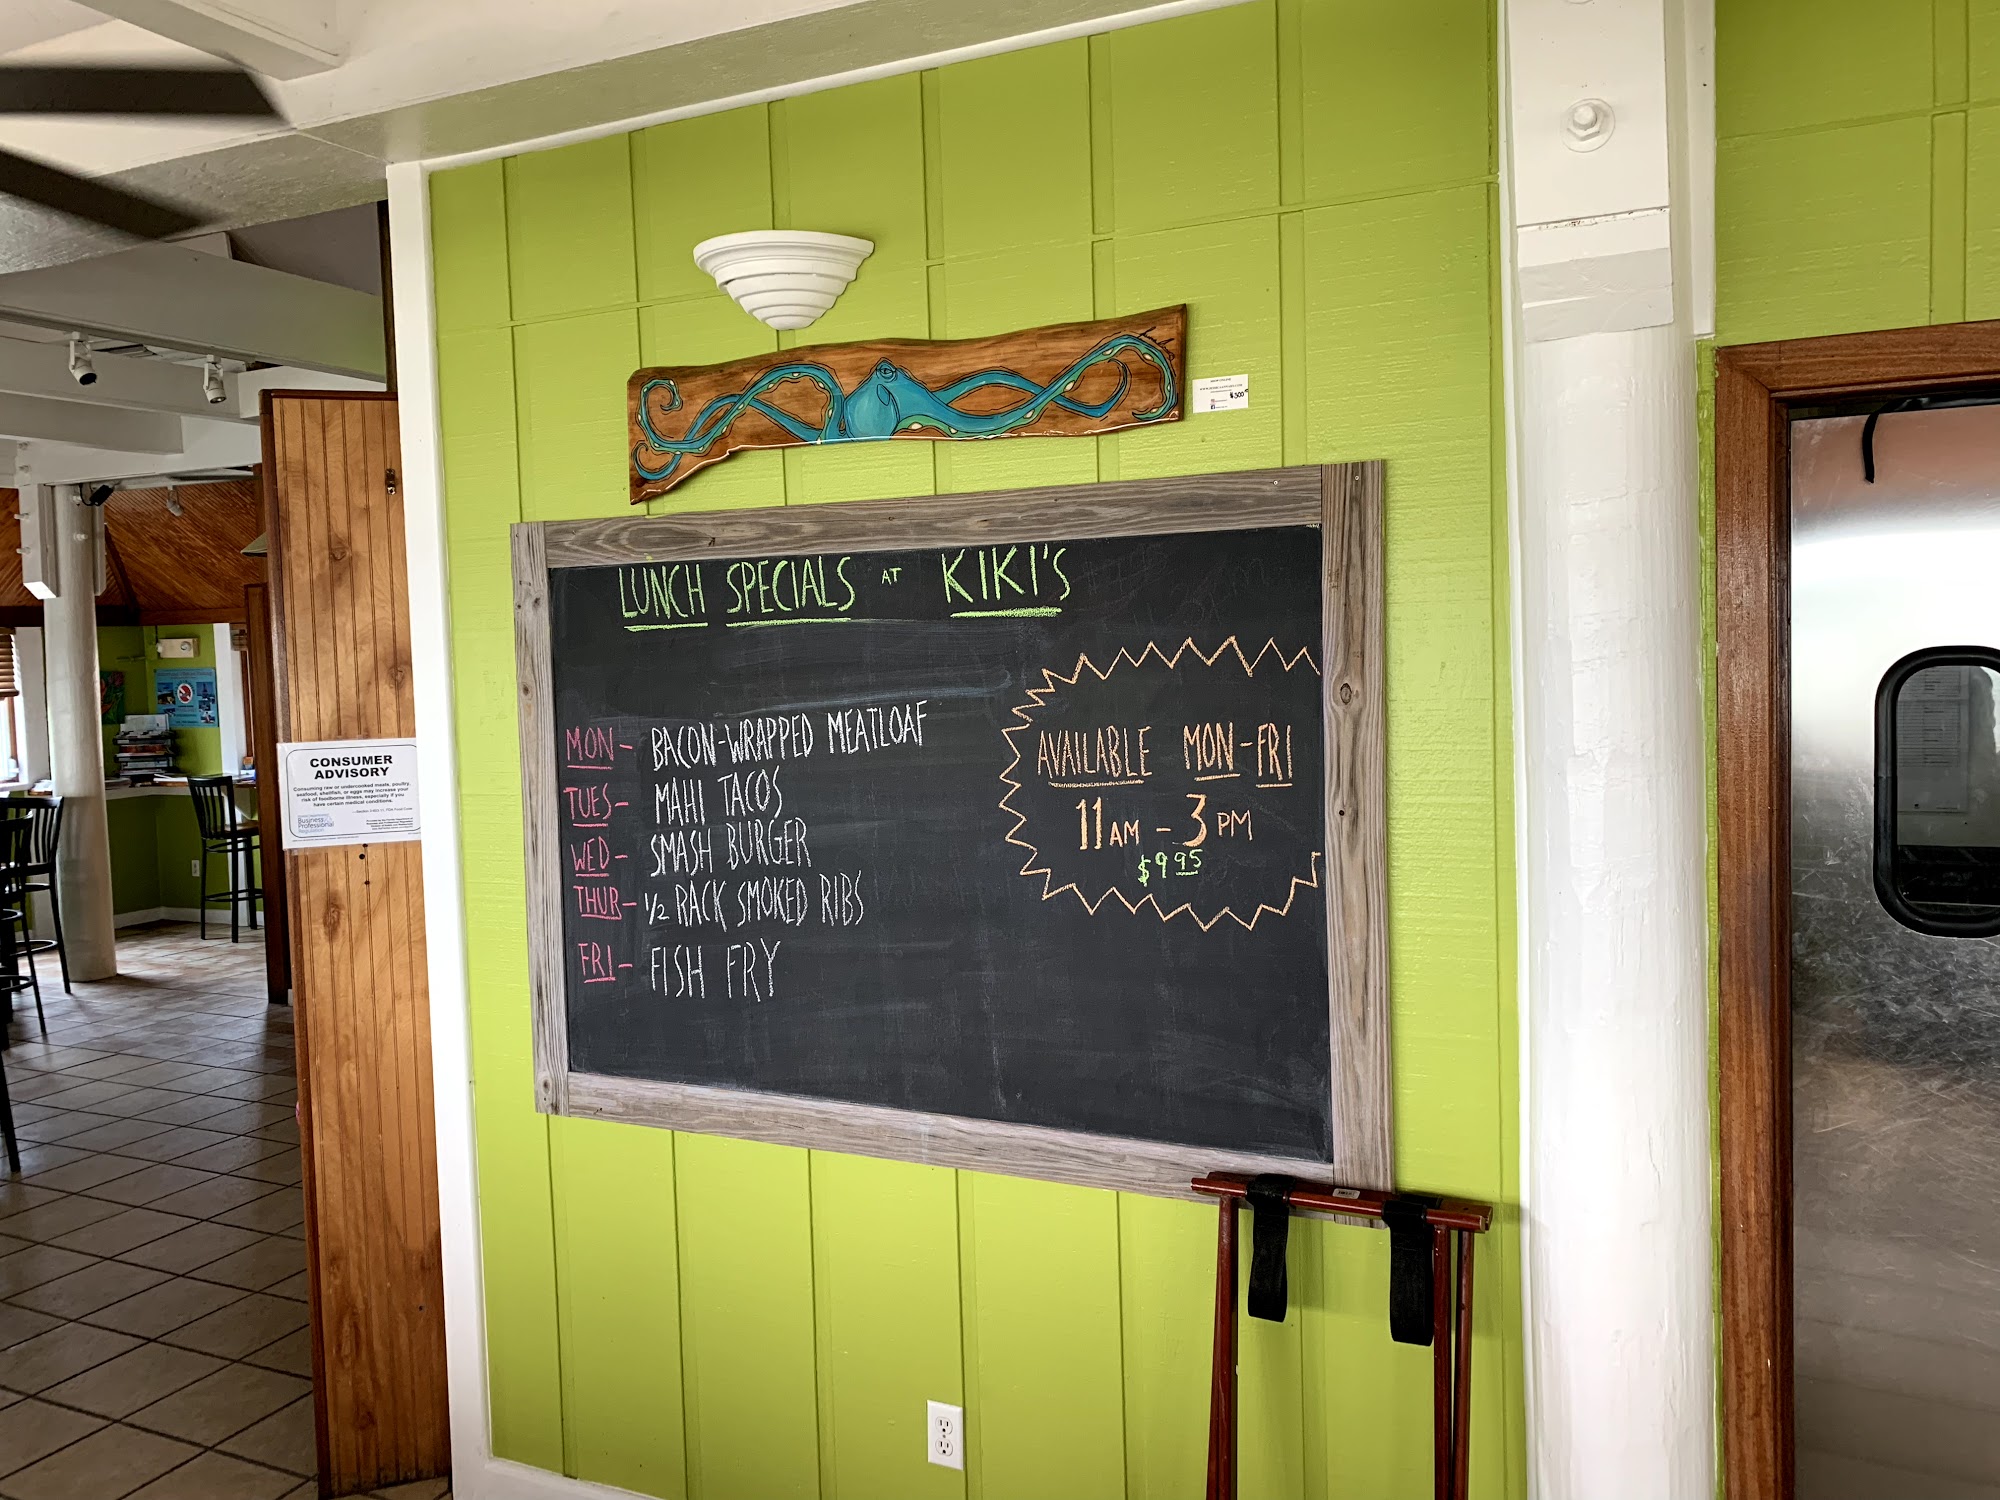 LUNCH SPECIALS AT KIKI'S
MON- BACON-WRAPPED MEATLOAF
TUES- MAHI TACOS
WED- SMASH BURGER
THUR- 1/2 RACK SMOKED RIBS
FRI- FISH FRY
AVAILABLE MON-FRI
11AM - 3PM
$9.95
CONSUMER
ADVISORY
Consuming raw or undercooked meats, poultry,
seafood, shellfish, or eggs may increase your
risk of foodborne illness, especially if you
have certain medical conditions.
Business
Professional
Regulation
$300